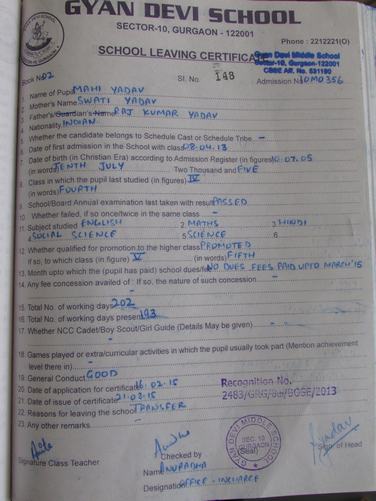 GYAN DEVI SCHOOL
SECTOR-10, GURGAON - 122001
Phone : 2212221(O)
SCHOOL LEAVING CERTIFICATE
Gyan Devi Middle School
Sector-10, Gurgaon-122001
CBSE Aff. No. 531180
Book No 02 Sl. No. 148 Admission No 10M0356
1. Name of Pupil MAHI YADAV
2. Mother's Name SWATI YADAV
3. Father's/Guardian's Name RAJ KUMAR YADAV
4. Nationality INDIAN
5. Whether the candidate belongs to Schedule Cast or Schedule Tribe -
6. Date of first admission in the School with class 08.04.13
7. Date of birth (in Christian Era) according to Admission Register (in figures) 10.07.05
(in words) TENTH JULY Two Thousand and FIVE
8. Class in which the pupil last studied (in figures) IV
(in words) FOURTH
9. School/Board Annual examination last taken with result PASSED
10. Whether failed, if so once/twice in the same class -
11. Subject studied ENGLISH 2 MATHS 3 HINDI
4 SOCIAL SCIENCE 5 SCIENCE 6
12. Whether qualified for promotion to the higher class PROMOTED
If so, to which class (in figure) V (in words) FIFTH
13. Month upto which the (pupil has paid) school dues/fee NO DUES FEES PAID UPTO MARCH'15
14. Any fee concession availed of : If so, the nature of such concession -
15. Total No. of working days 202
16. Total No. of working days present 193
17. Whether NCC Cadet/Boy Scout/Girl Guide (Details May be given) -
18. Games played or extra/curricular activities in which the pupil usually took part (Mention achievement
level there in) -
19. General Conduct GOOD
20. Date of application for certificate 16.02.15
21. Date of issue of certificate 21.03.15
22. Reasons for leaving the school TRANSFER
23. Any other remarks -
Recognition No.
GYAN DEVI MIDDLE SCHOOL
SEC. 10
GURGAON
(Seal)
Signature Class Teacher
Checked by
Name ANURADHA
Designation OFFICE-INCHARGE
Sign of Head